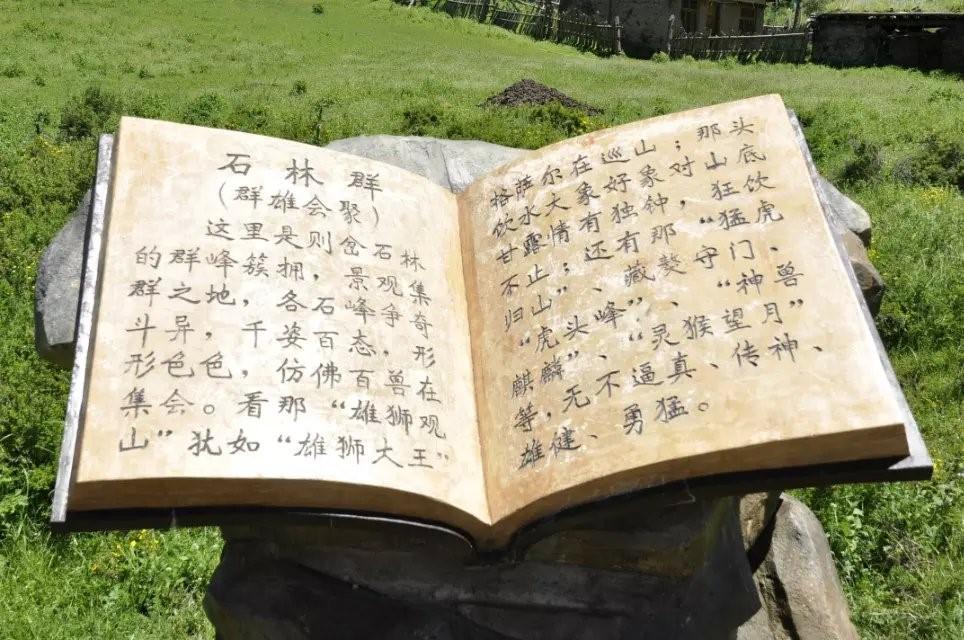 石林群
（群雄会聚）
这里是则岔石林
的群峰簇拥，景观集
群之地，各石峰争奇
斗异，千姿百态，形
形色色，仿佛百兽在
集会。看那“雄狮观
山”犹如“雄狮大王”
格萨尔在巡山；那头
饮水大象好象对山底
甘露情有独钟，狂饮
不止；还有那“猛虎
归山”、藏獒守门、
“虎头峰”、“神兽
麒麟”、“灵猴望月”
等，无不逼真、传神、
雄健、勇猛。